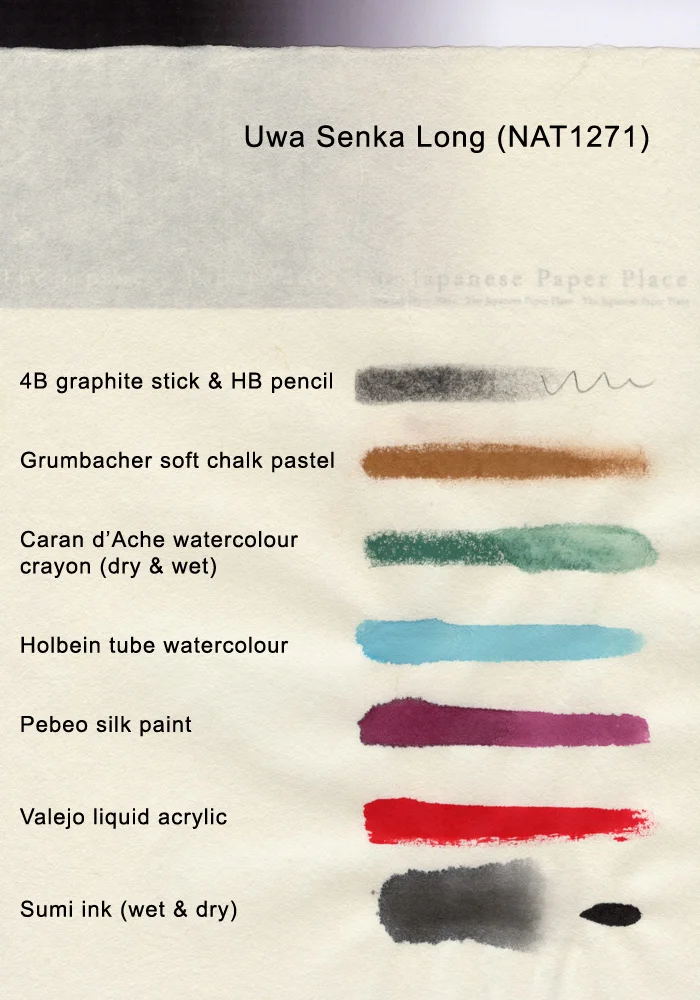 Uwa Senka Long (NAT1271)
Japanese Paper Place
The Japanese Paper Place The Japanese Paper Place
4B graphite stick & HB pencil
Grumbacher soft chalk pastel
Caran d’Ache watercolour
crayon (dry & wet)
Holbein tube watercolour
Pebeo silk paint
Valejo liquid acrylic
Sumi ink (wet & dry)